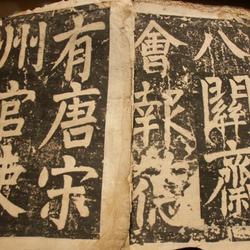 八關齋
會報德
有唐宋
州官吏